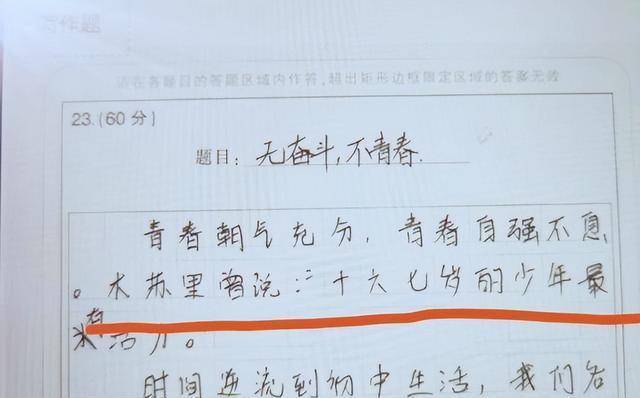 写作题
请在各题目的答题区域内作答,超出矩形边框限定区域的答案无效
23.(60分)
题目: 无奋斗,不青春.
青春朝气充分,青春自强不息
。木苏里曾说:“十六七岁的少年最
有活力。
时间逆流到初中生活,我们